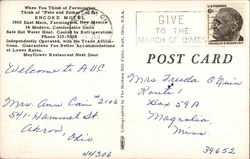 When You Think of Farmington,
Think of "Pete and Esther" at the
ENCORE MOTEL
1900 East Main, Farmington, New Mexico
36 Modern, Comfortable Units
Safe Hot Water Heat. Cooled by Refrigeration.
Phone 325-5008
Independently Operated, with No Affiliations.
Guarantees You Better Accommodations
at Lower Rates.
Mayflower Restaurant Next Door
GIVE
TO THE
MARCH OF DIMES
POST CARD
Welcome to AVC.
Mrs. Ann Cain 2106
541-Hammel St.
Akron,
Ohio
44306
Mrs Freeda O'Quin
Route 1
Box 59A
Magnolia,
Miss.
39652